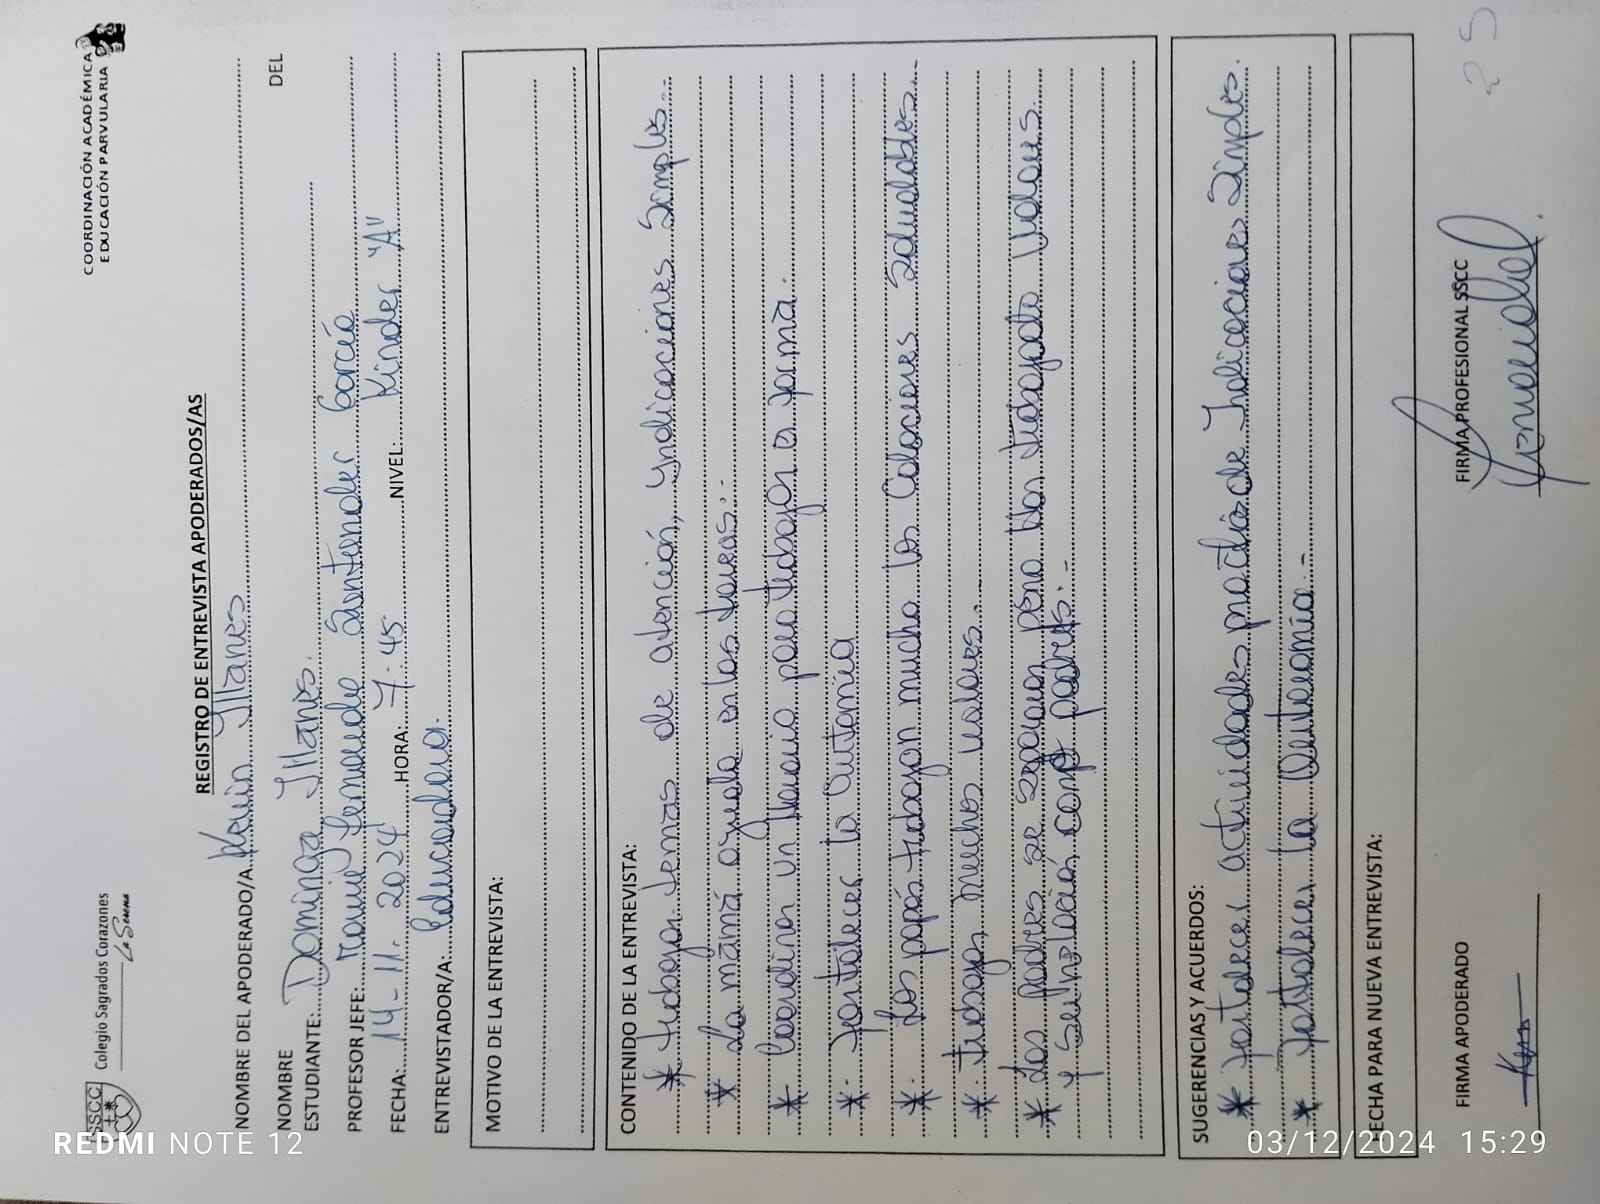 SSCC
Colegio Sagrados Corazones
La Serena
COORDINACIÓN ACADÉMICA
EDUCACIÓN PARVULARIA
REGISTRO DE ENTREVISTA APODERADOS/AS
NOMBRE DEL APODERADO/A. Kevin Illanes
NOMBRE DEL
ESTUDIANTE: Dominga Illanes.
PROFESOR JEFE: Fernanda Santander García
FECHA: 14-11-2024 HORA: 7:45 NIVEL: Kinder "A"
ENTREVISTADOR/A: Educadora.
MOTIVO DE LA ENTREVISTA:
CONTENIDO DE LA ENTREVISTA:
* trabajan temas de atención, Indicaciones Simples.-
* La mamá ayuda en las tareas.-
* Coordinan un horario para trabajar en forma.-
*- Fortalecer la Autamía
*. Los papás trabajan mucho las Colaciones Saludables.-
*. Trabajan muchos valores.-
* Los padres se separan pero Han trabajado Valores
y su relación como padres.-
SUGERENCIAS Y ACUERDOS:
* Fortalecer actividades practicas de Indicaciones Simples.
* Fortalecer la Autonomía.-
FECHA PARA NUEVA ENTREVISTA:
FIRMA APODERADO
FIRMA PROFESIONAL SSCC
25
REDMI NOTE 12
03/12/2024 15:29